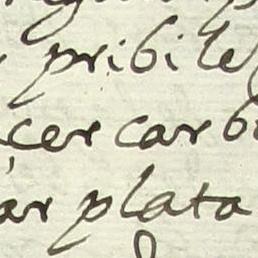 pribile
çercarb
ar plata